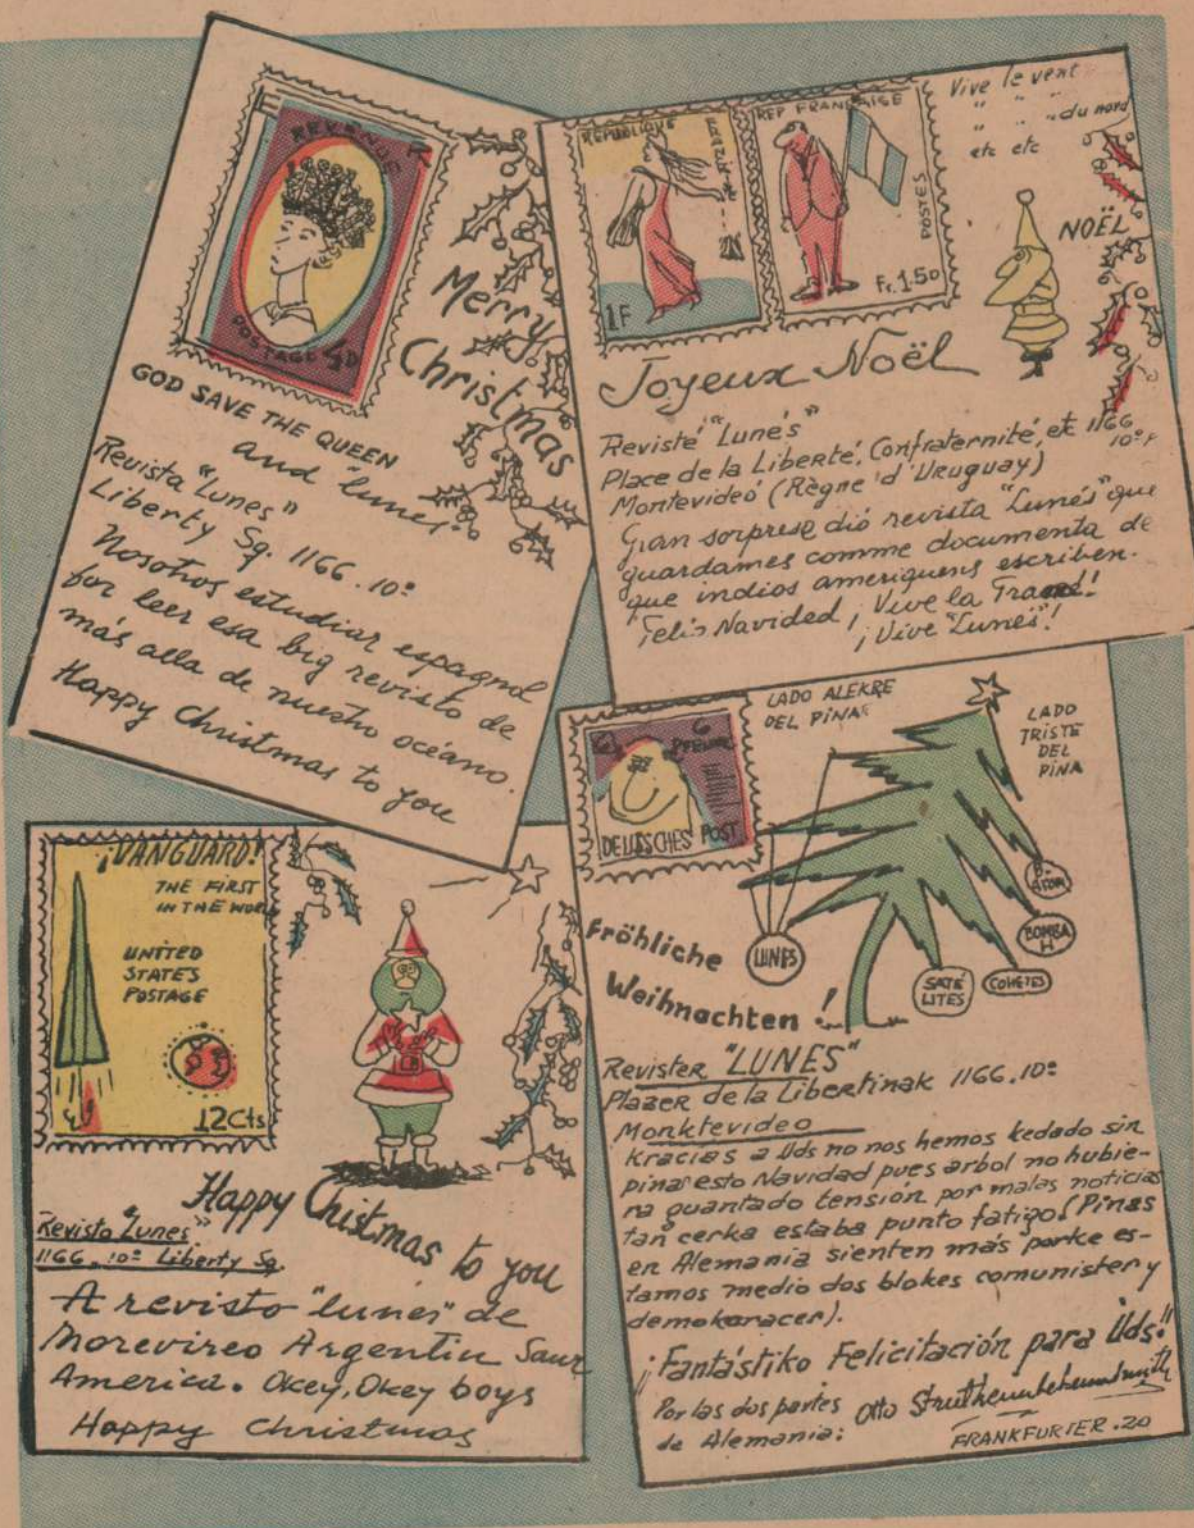 REVENUE
POSTAGE
Merry
Christmas
GOD SAVE THE QUEEN
and "lunes"
Revista "Lunes"
Liberty Sq. 1166.10º
Nosotros estudiar espagnol
for leer esa big revisto de
más alla de nuestro océano.
Happy Christmas to you
REPUBLIQUE
1F
REP FRANÇAISE
POSTES
Fr. 1.50
Vive le vent
" " " du nord
etc etc
NOËL
Joyeux Noël
Revisté "Lunés"
Place de la Liberté, Confraternité, etc 1166
10º
Montevideó (Règne d'Uruguay)
Gran sorprese dió revista "Lunés" que
guardames comme documenta de
que indios ameriquens escriben.
Felis Navided, ¡Vive la
¡Vive "Lunés"!
¡VANGUARD!
THE FIRST
IN THE
UNITED
STATES
POSTAGE
12Cts
Happy Chistmas to you
Revisto "Lunes"
1166.10º Liberty Sq.
A revisto "lunes" de
Morevireo Argentin Saur
America. Okey, Okey boys
Happy Christmas
6
DEUTSCHES POST
LADO ALEKRE
DEL PINA
LADO
TRISTE
DEL
PINA
B.
ATOM
BOMBA
H
COHETES
SATÉ
LITES
LUNES
Fröhliche
Weihnachten!
Revister "LUNES"
Plazer de la Libertinak 1166.10º
Monktevideo
Kracias a Uds no nos hemos kedado sin
pinar esto Navidad pues arbol no hubie-
ra quantado tensión por malas noticias
tan cerka estaba punto fatigo (Pinas
en Alemania sienten más porke es-
tamos medio dos blokes comunister y
demokaracer).
¡Fantástiko Felicitación para Uds!!
Por las dos partes
de Alemania: Otto
FRANKFURTER.20